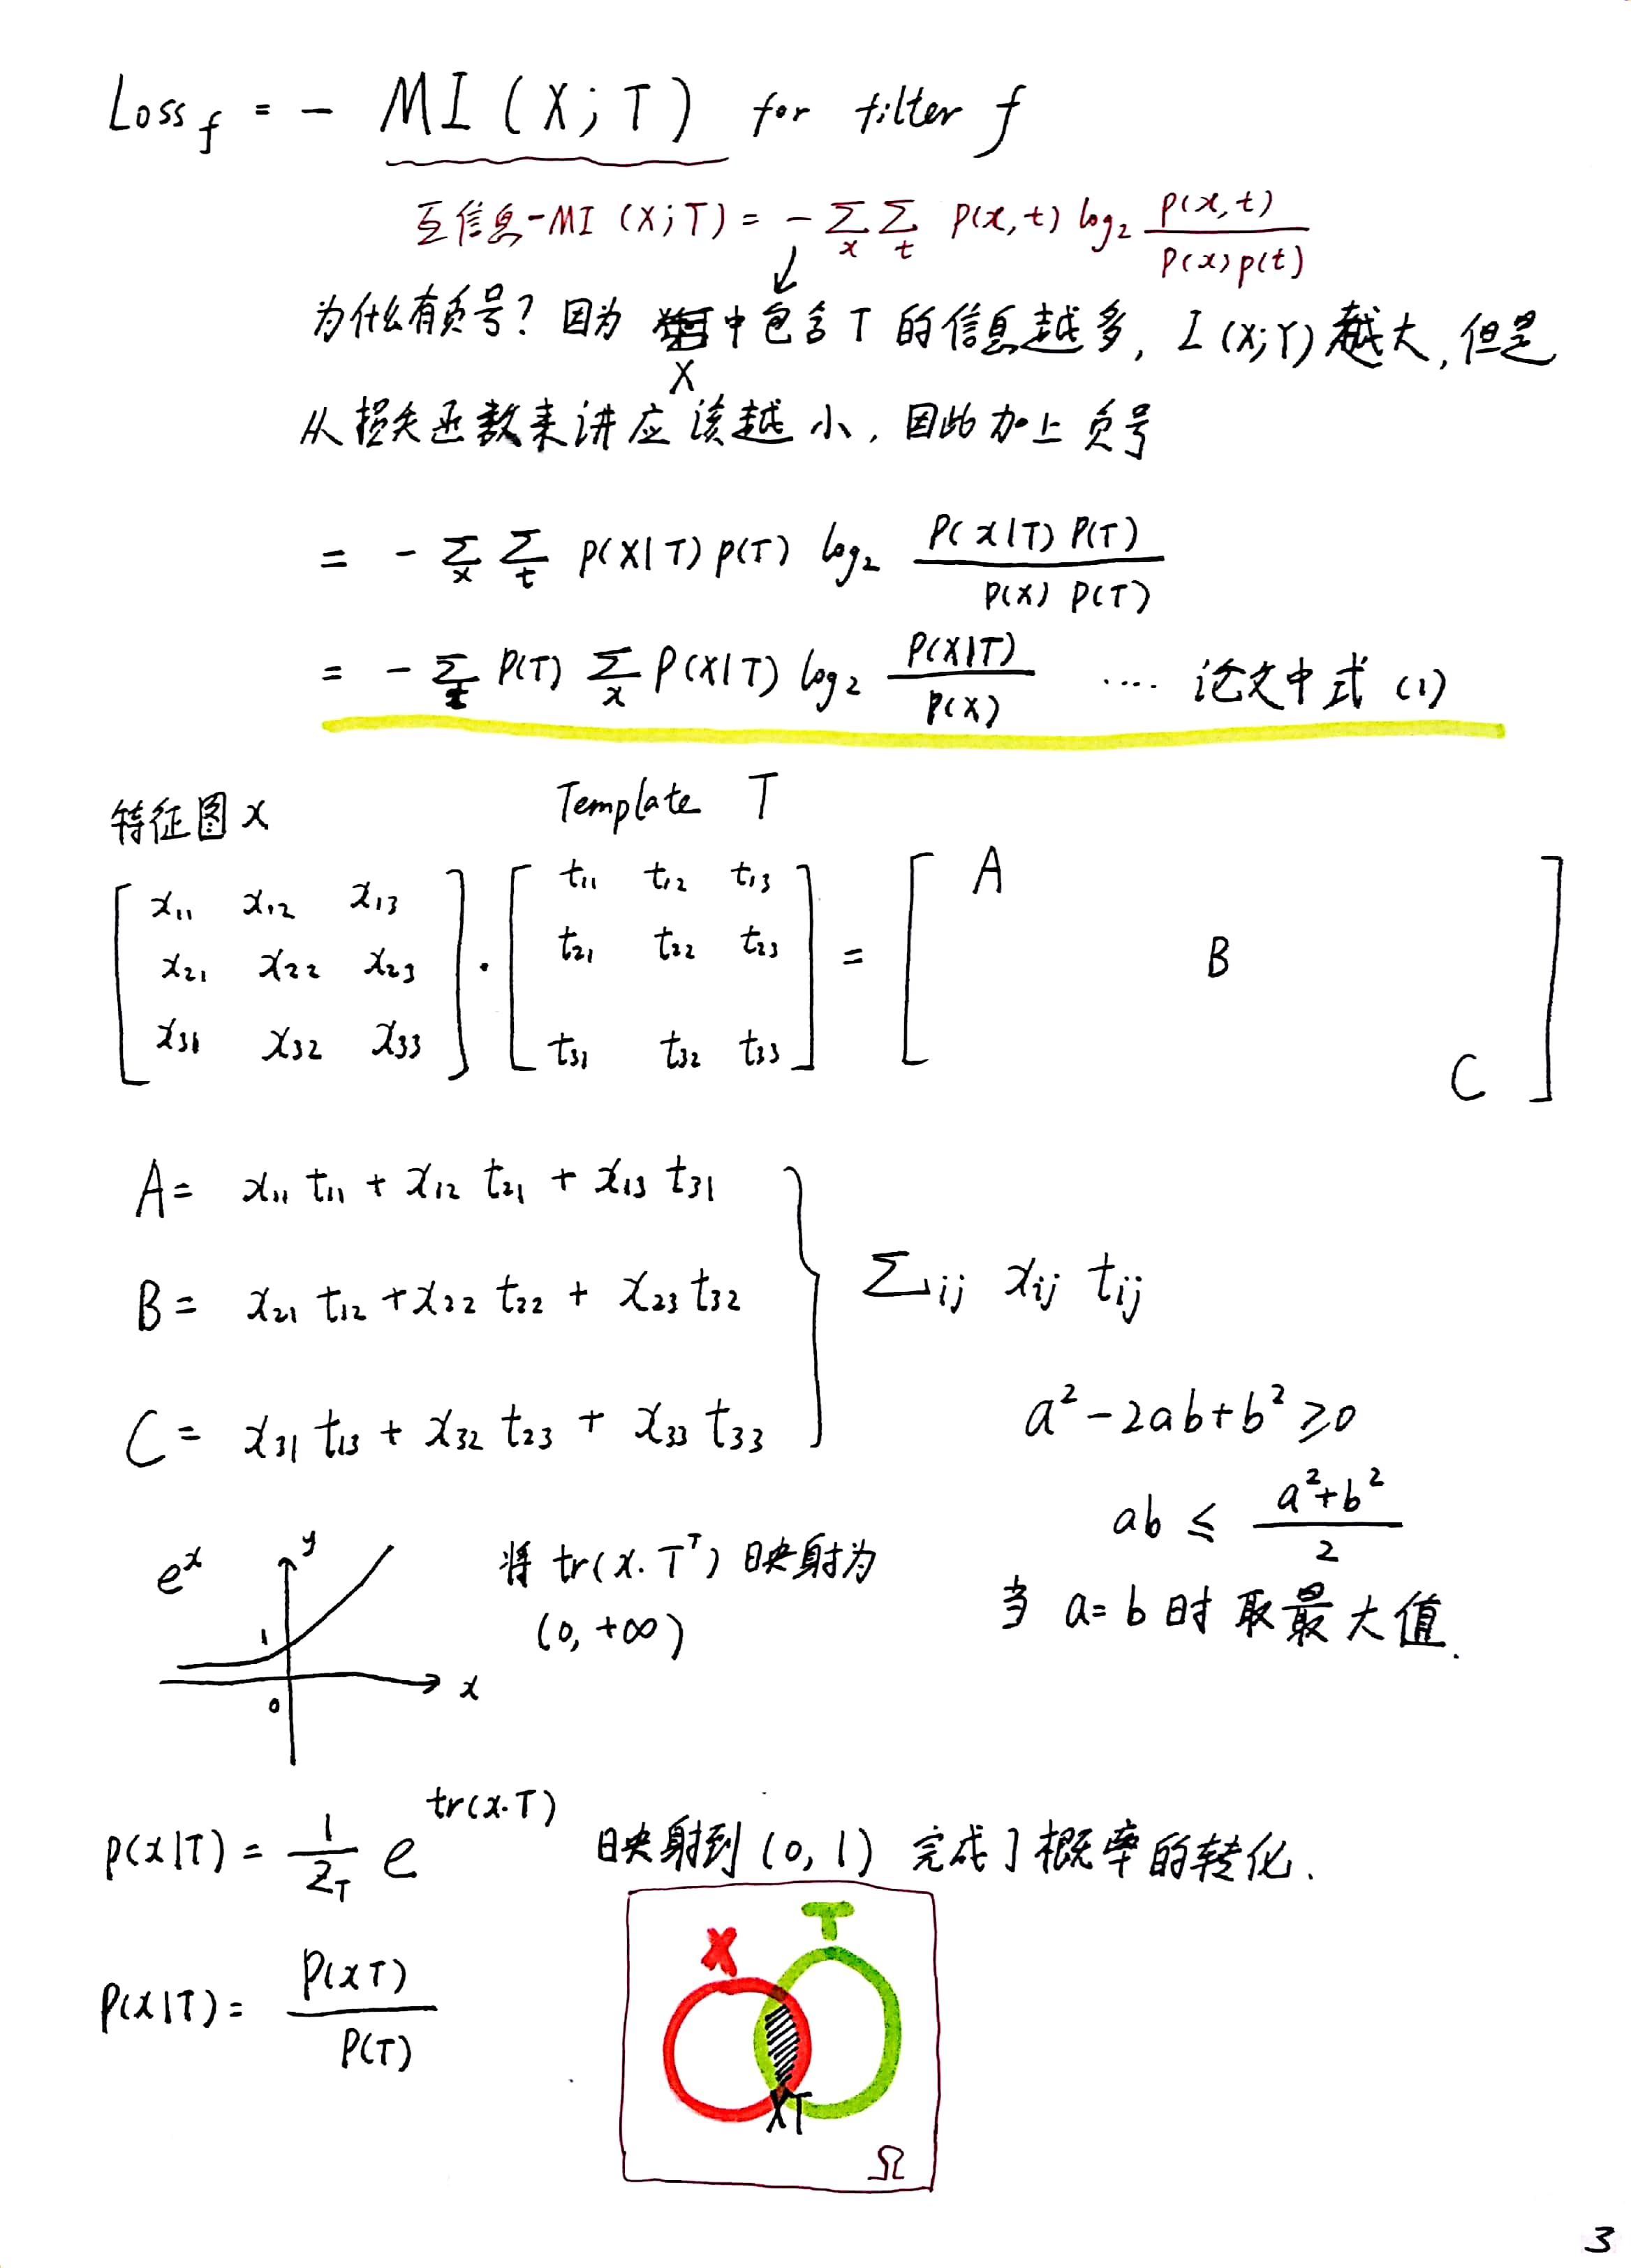 Loss_f = - MI (X; T) for filter f
互信息-MI (X; T) = - Σ_x Σ_t P(x,t) log₂ P(x,t) / P(x)p(t)
为什么有负号? 因为 X 中包含 T 的信息越多, I(X;Y) 越大, 但是
从损失函数来讲应该越小, 因此加上负号
= - Σ_x Σ_t P(X|T) P(T) log₂ P(X|T) P(T) / P(X) P(T)
= - Σ_t P(T) Σ_x P(X|T) log₂ P(X|T) / P(X) .... 论文中式 (1)
特征图 x
Template T
[ x₁₁ x₁₂ x₁₃ ] · [ t₁₁ t₁₂ t₁₃ ] = [ A
x₂₁ x₂₂ x₂₃ t₂₁ t₂₂ t₂₃ B
x₃₁ x₃₂ x₃₃ t₃₁ t₃₂ t₃₃ C ]
A = x₁₁ t₁₁ + x₁₂ t₂₁ + x₁₃ t₃₁
B = x₂₁ t₁₂ + x₂₂ t₂₂ + x₂₃ t₃₂
C = x₃₁ t₁₃ + x₃₂ t₂₃ + x₃₃ t₃₃
Σ_ij x_ij t_ij
a² - 2ab + b² ⩾ 0
ab ≤ a²+b² / 2
当 a = b 时 取最大值.
e^x
y
1
0
x
将 tr(x·T^T) 映射为
(0, +∞)
p(x|T) = 1/Z_T e^tr(x·T) 映射到 (0, 1) 完成了概率的转化.
P(X|T) = P(XT) / P(T)
X
T
XT
Ω
3